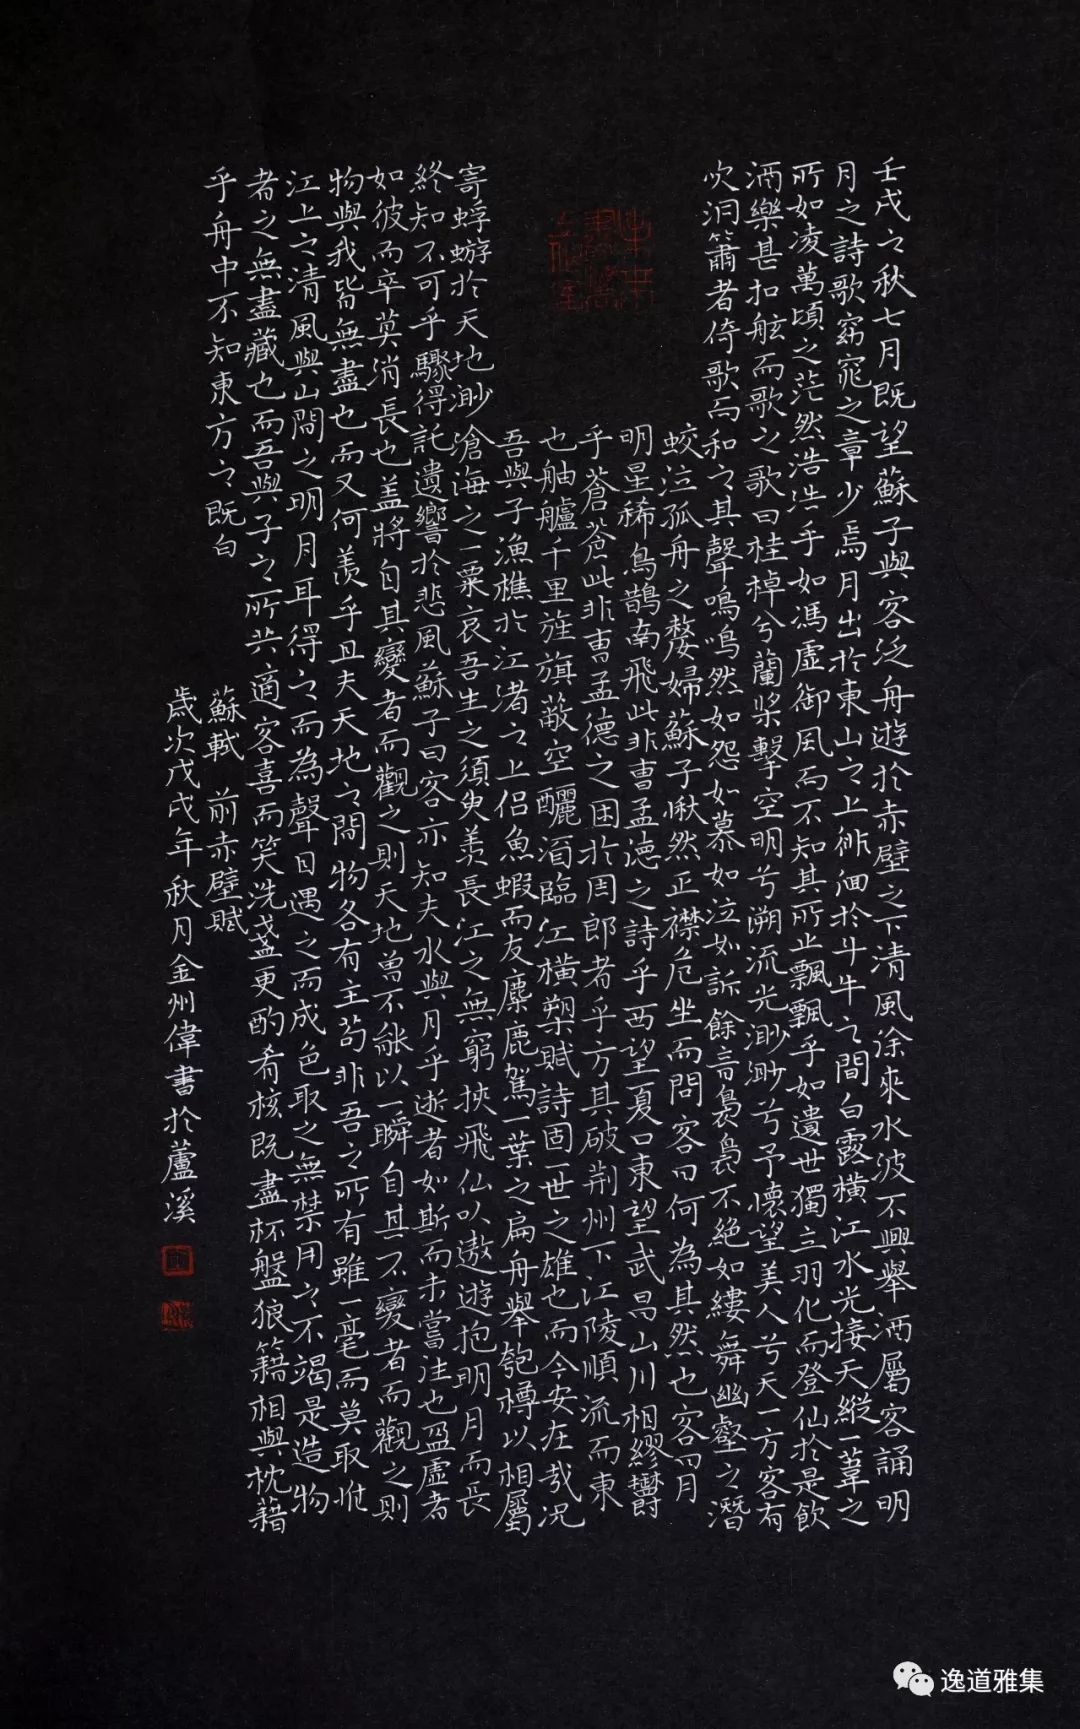 壬戌之秋七月既望蘇子與客泛舟遊於赤壁之下清風徐來水波不興舉酒屬客誦明
月之詩歌窈窕之章少焉月出於東山之上徘徊於斗牛之間白露橫江水光接天縱一葦之
所如凌萬頃之茫然浩浩乎如馮虛御風而不知其所止飄飄乎如遺世獨立羽化而登仙於是飲
酒樂甚扣舷而歌之歌曰桂棹兮蘭槳擊空明兮溯流光渺渺兮予懷望美人兮天一方客有
吹洞簫者倚歌而和之其聲嗚嗚然如怨如慕如泣如訴餘音裊裊不絕如縷舞幽壑之潛
蛟泣孤舟之嫠婦蘇子愀然正襟危坐而問客曰何為其然也客曰月
明星稀烏鵲南飛此非曹孟德之詩乎西望夏口東望武昌山川相繆鬱
乎蒼蒼此非曹孟德之困於周郎者乎方其破荊州下江陵順流而東
也舳艫千里旌旗蔽空釃酒臨江橫槊賦詩固一世之雄也而今安在哉況
吾與子漁樵於江渚之上侶魚蝦而友麋鹿駕一葉之扁舟舉匏樽以相屬
寄蜉蝣於天地渺滄海之一粟哀吾生之須臾羨長江之無窮挾飛仙以遨遊抱明月而長
終知不可乎驟得託遺響於悲風蘇子曰客亦知夫水與月乎逝者如斯而未嘗往也盈虛者
如彼而卒莫消長也盖將自其變者而觀之則天地曾不能以一瞬自其不變者而觀之則
物與我皆無盡也而又何羨乎且夫天地之間物各有主苟非吾之所有雖一毫而莫取惟
江上之清風與山間之明月耳得之而為聲目遇之而成色取之無禁用之不竭是造物
者之無盡藏也而吾與子之所共適客喜而笑洗盞更酌肴核既盡杯盤狼籍相與枕藉
乎舟中不知東方之既白
蘇軾 前赤壁賦
歲次戊戌年秋月金州偉書於蘆溪
逸道雅集